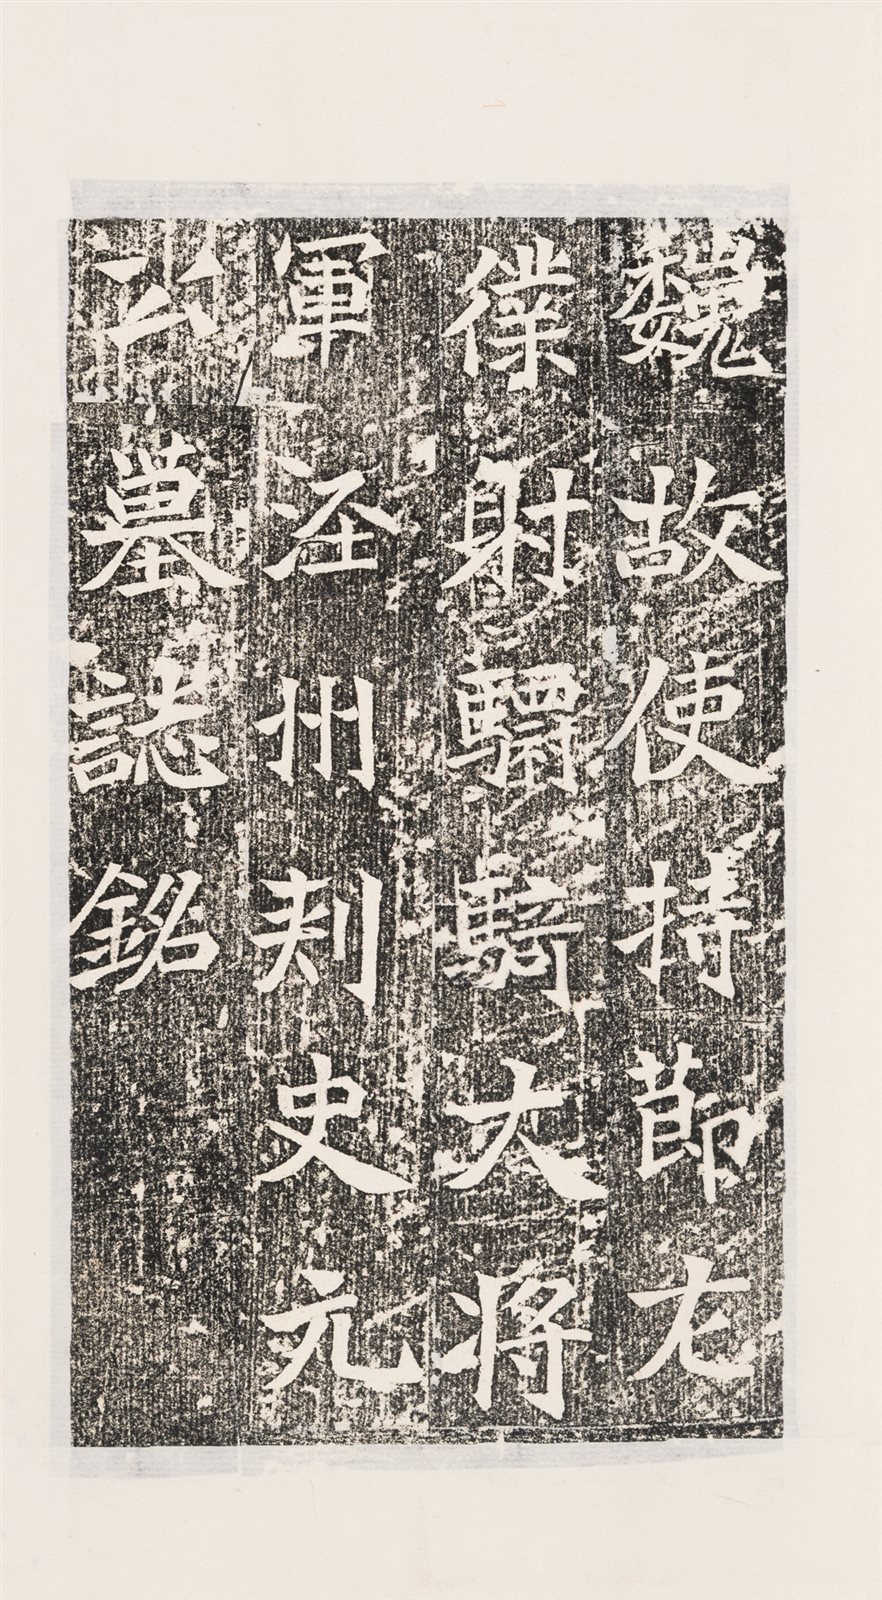 魏故使持莭左
僕射驃騎大将
軍涇州刾史元
公墓誌銘